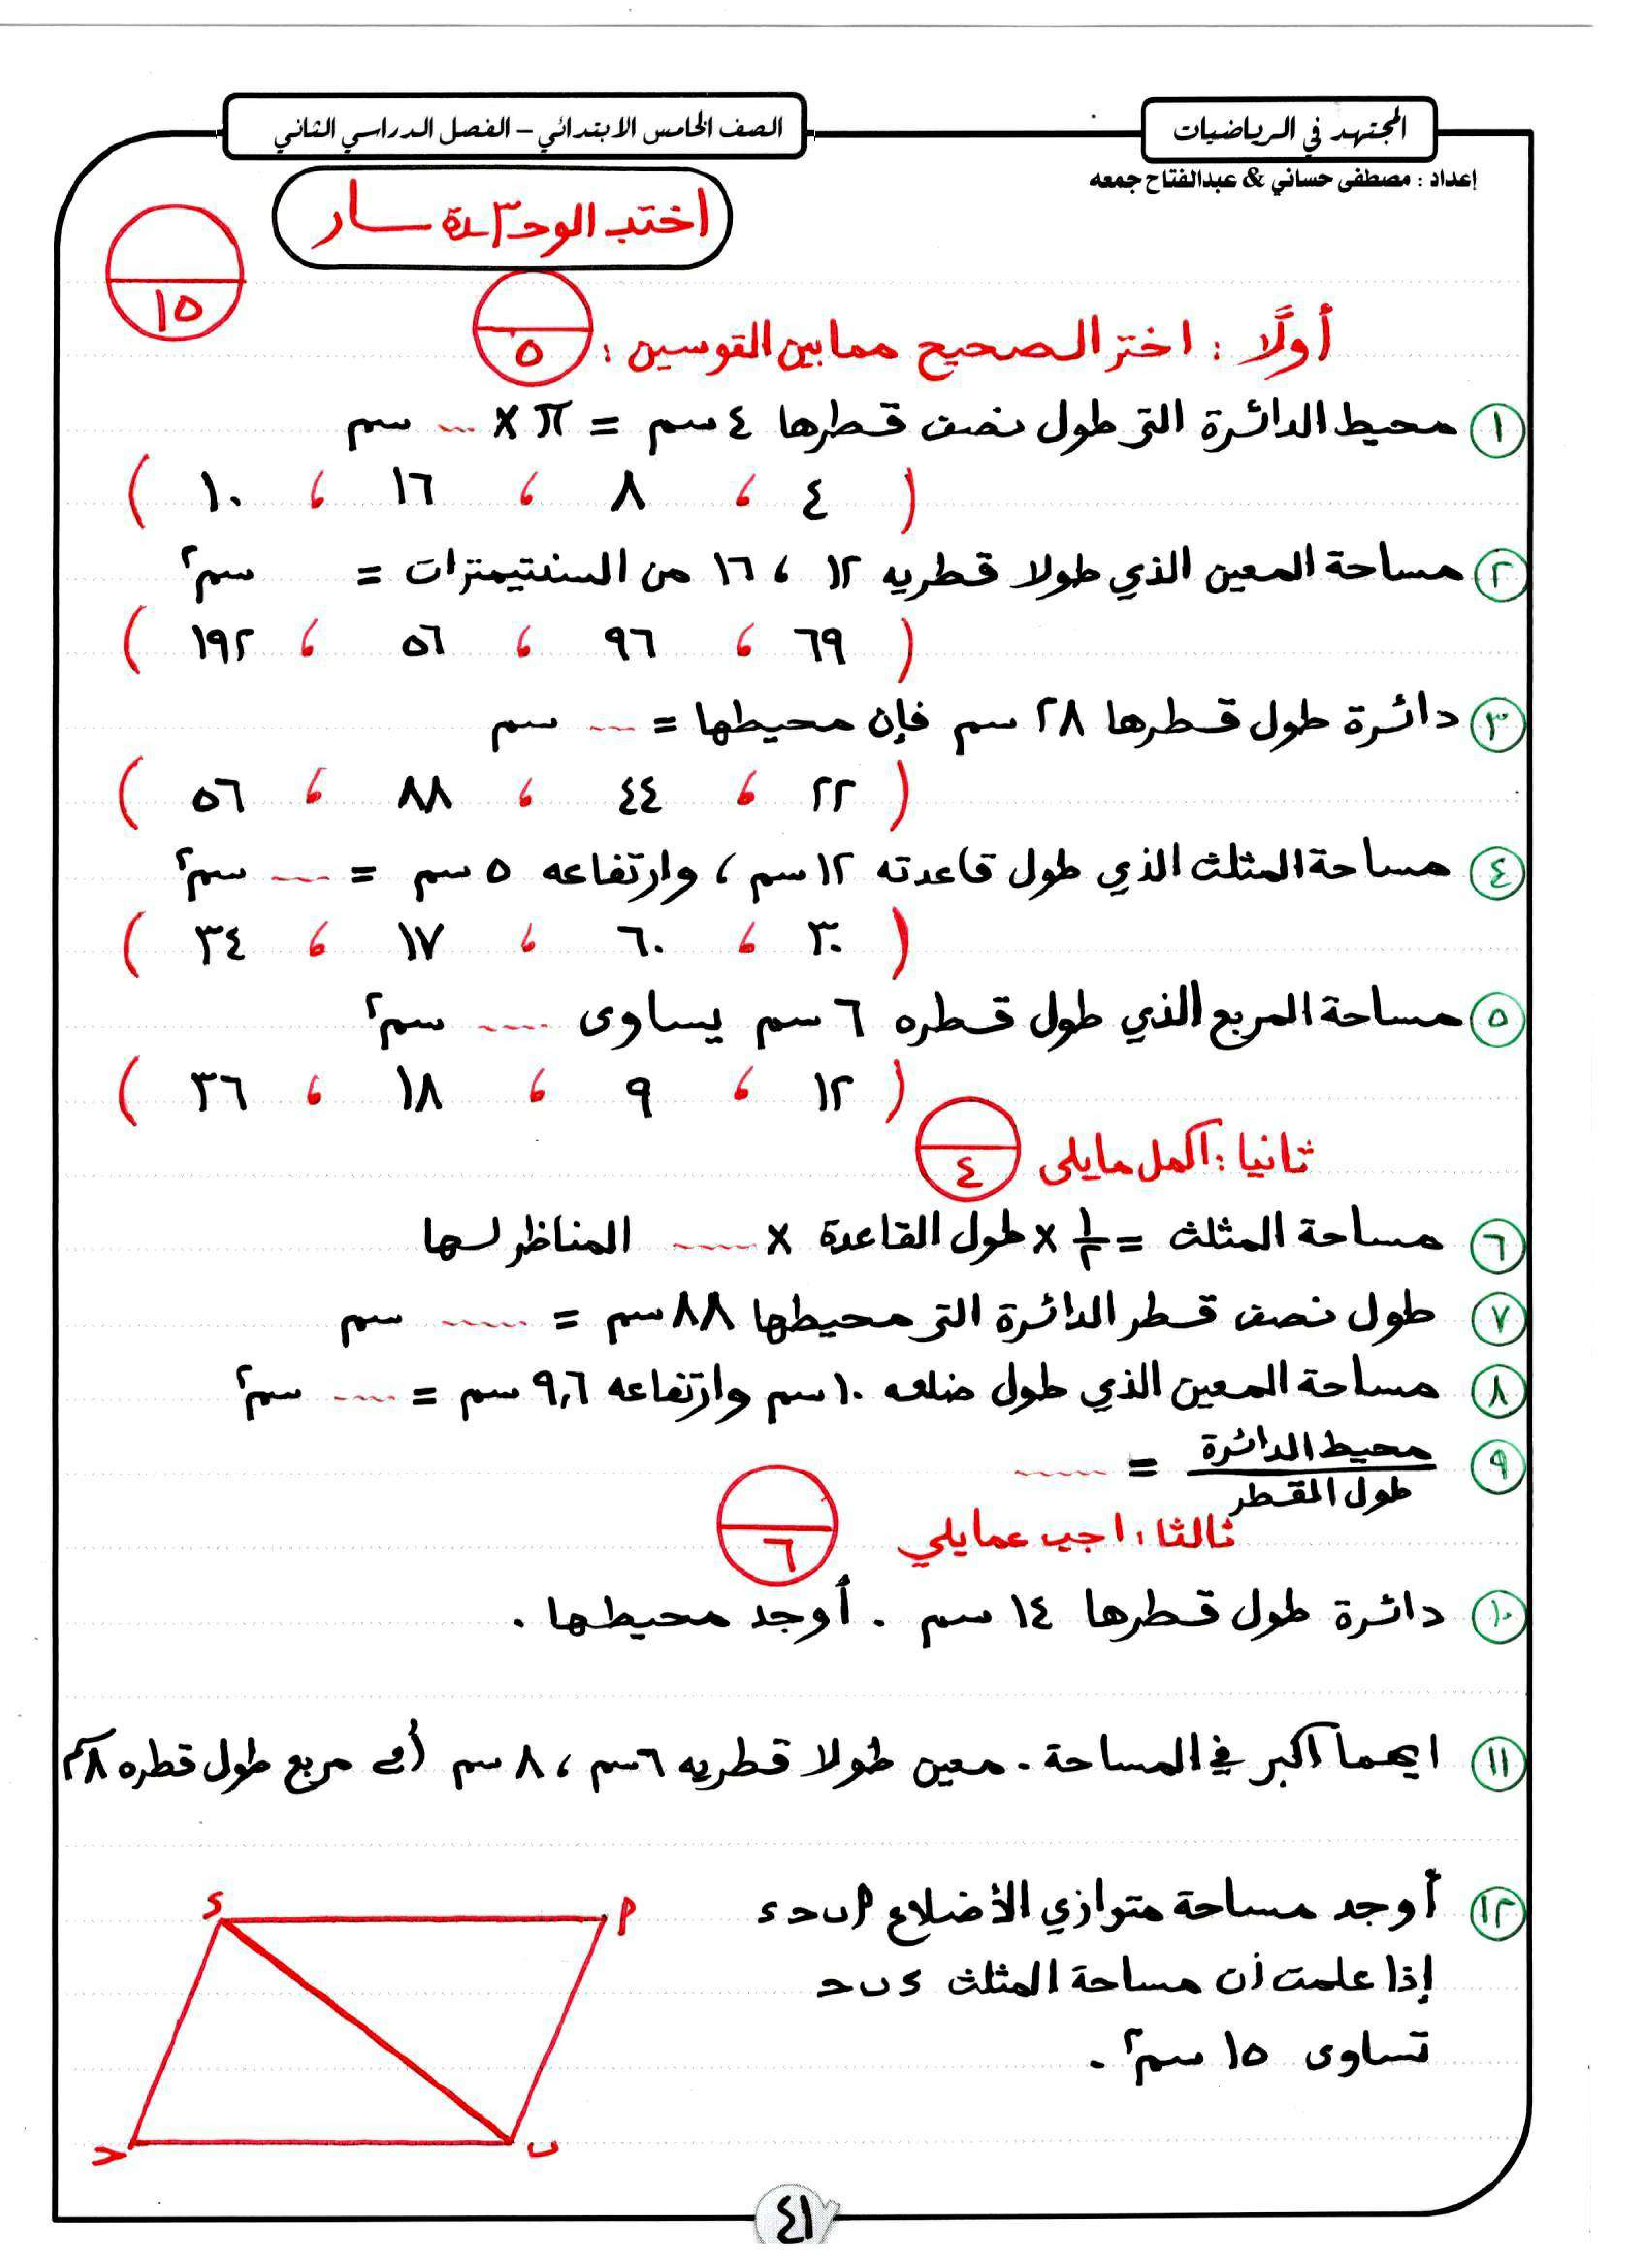 المجتهد في الرياضيات
الصف الخامس الابتدائي – الفصل الدراسي الثاني
إعداد : مصطفى حساني & عبدالفتاح جمعه
١٥
أولًا : اختر الصحيح مما بين القوسين :
٥
١ محيط الدائرة التى طول نصف قطرها ٤ سم = π × ... سم
( ٤ ، ٨ ، ١٦ ، ١٠ )
٢ مساحة المعين الذي طولا قطريه ١٢ ، ١٦ من السنتيمترات = سم٢
( ٦٩ ، ٩٦ ، ٥٦ ، ١٩٢ )
٣ دائرة طول قطرها ٢٨ سم فإن محيطها = ... سم
( ٢٢ ، ٤٤ ، ٨٨ ، ٥٦ )
٤ مساحة المثلث الذي طول قاعدته ١٢ سم ، وارتفاعه ٥ سم = .... سم٢
( ٣٠ ، ٦٠ ، ١٧ ، ٣٤ )
٥ مساحة المربع الذي طول قطره ٦ سم يساوى .... سم٢
( ١٢ ، ٩ ، ١٨ ، ٣٦ )
ثانيا : اكمل مايلى
٤
٦ مساحة المثلث = ١/٢ × طول القاعدة × ..... المناظر لها
٧ طول نصف قطر الدائرة التى محيطها ٨٨ سم = ..... سم
٨ مساحة المعين الذي طول ضلعه ١٠ سم وارتفاعه ٩,٦ سم = .... سم٢
٩ محيط الدائرة / طول القطر = .....
ثالثا : اجب عمايلي
٦
١٠ دائرة طول قطرها ١٤ سم . أوجد محيطها .
١١ ايهما اكبر في المساحة . معين طولا قطريه ٦ سم ، ٨ سم أم مربع طول قطره ٨ سم
١٢ أوجد مساحة متوازي الأضلاع ا ب ج د
إذا علمت أن مساحة المثلث د ب ج
تساوى ١٥ سم٢ .
د
ا
ج
ب
٤١